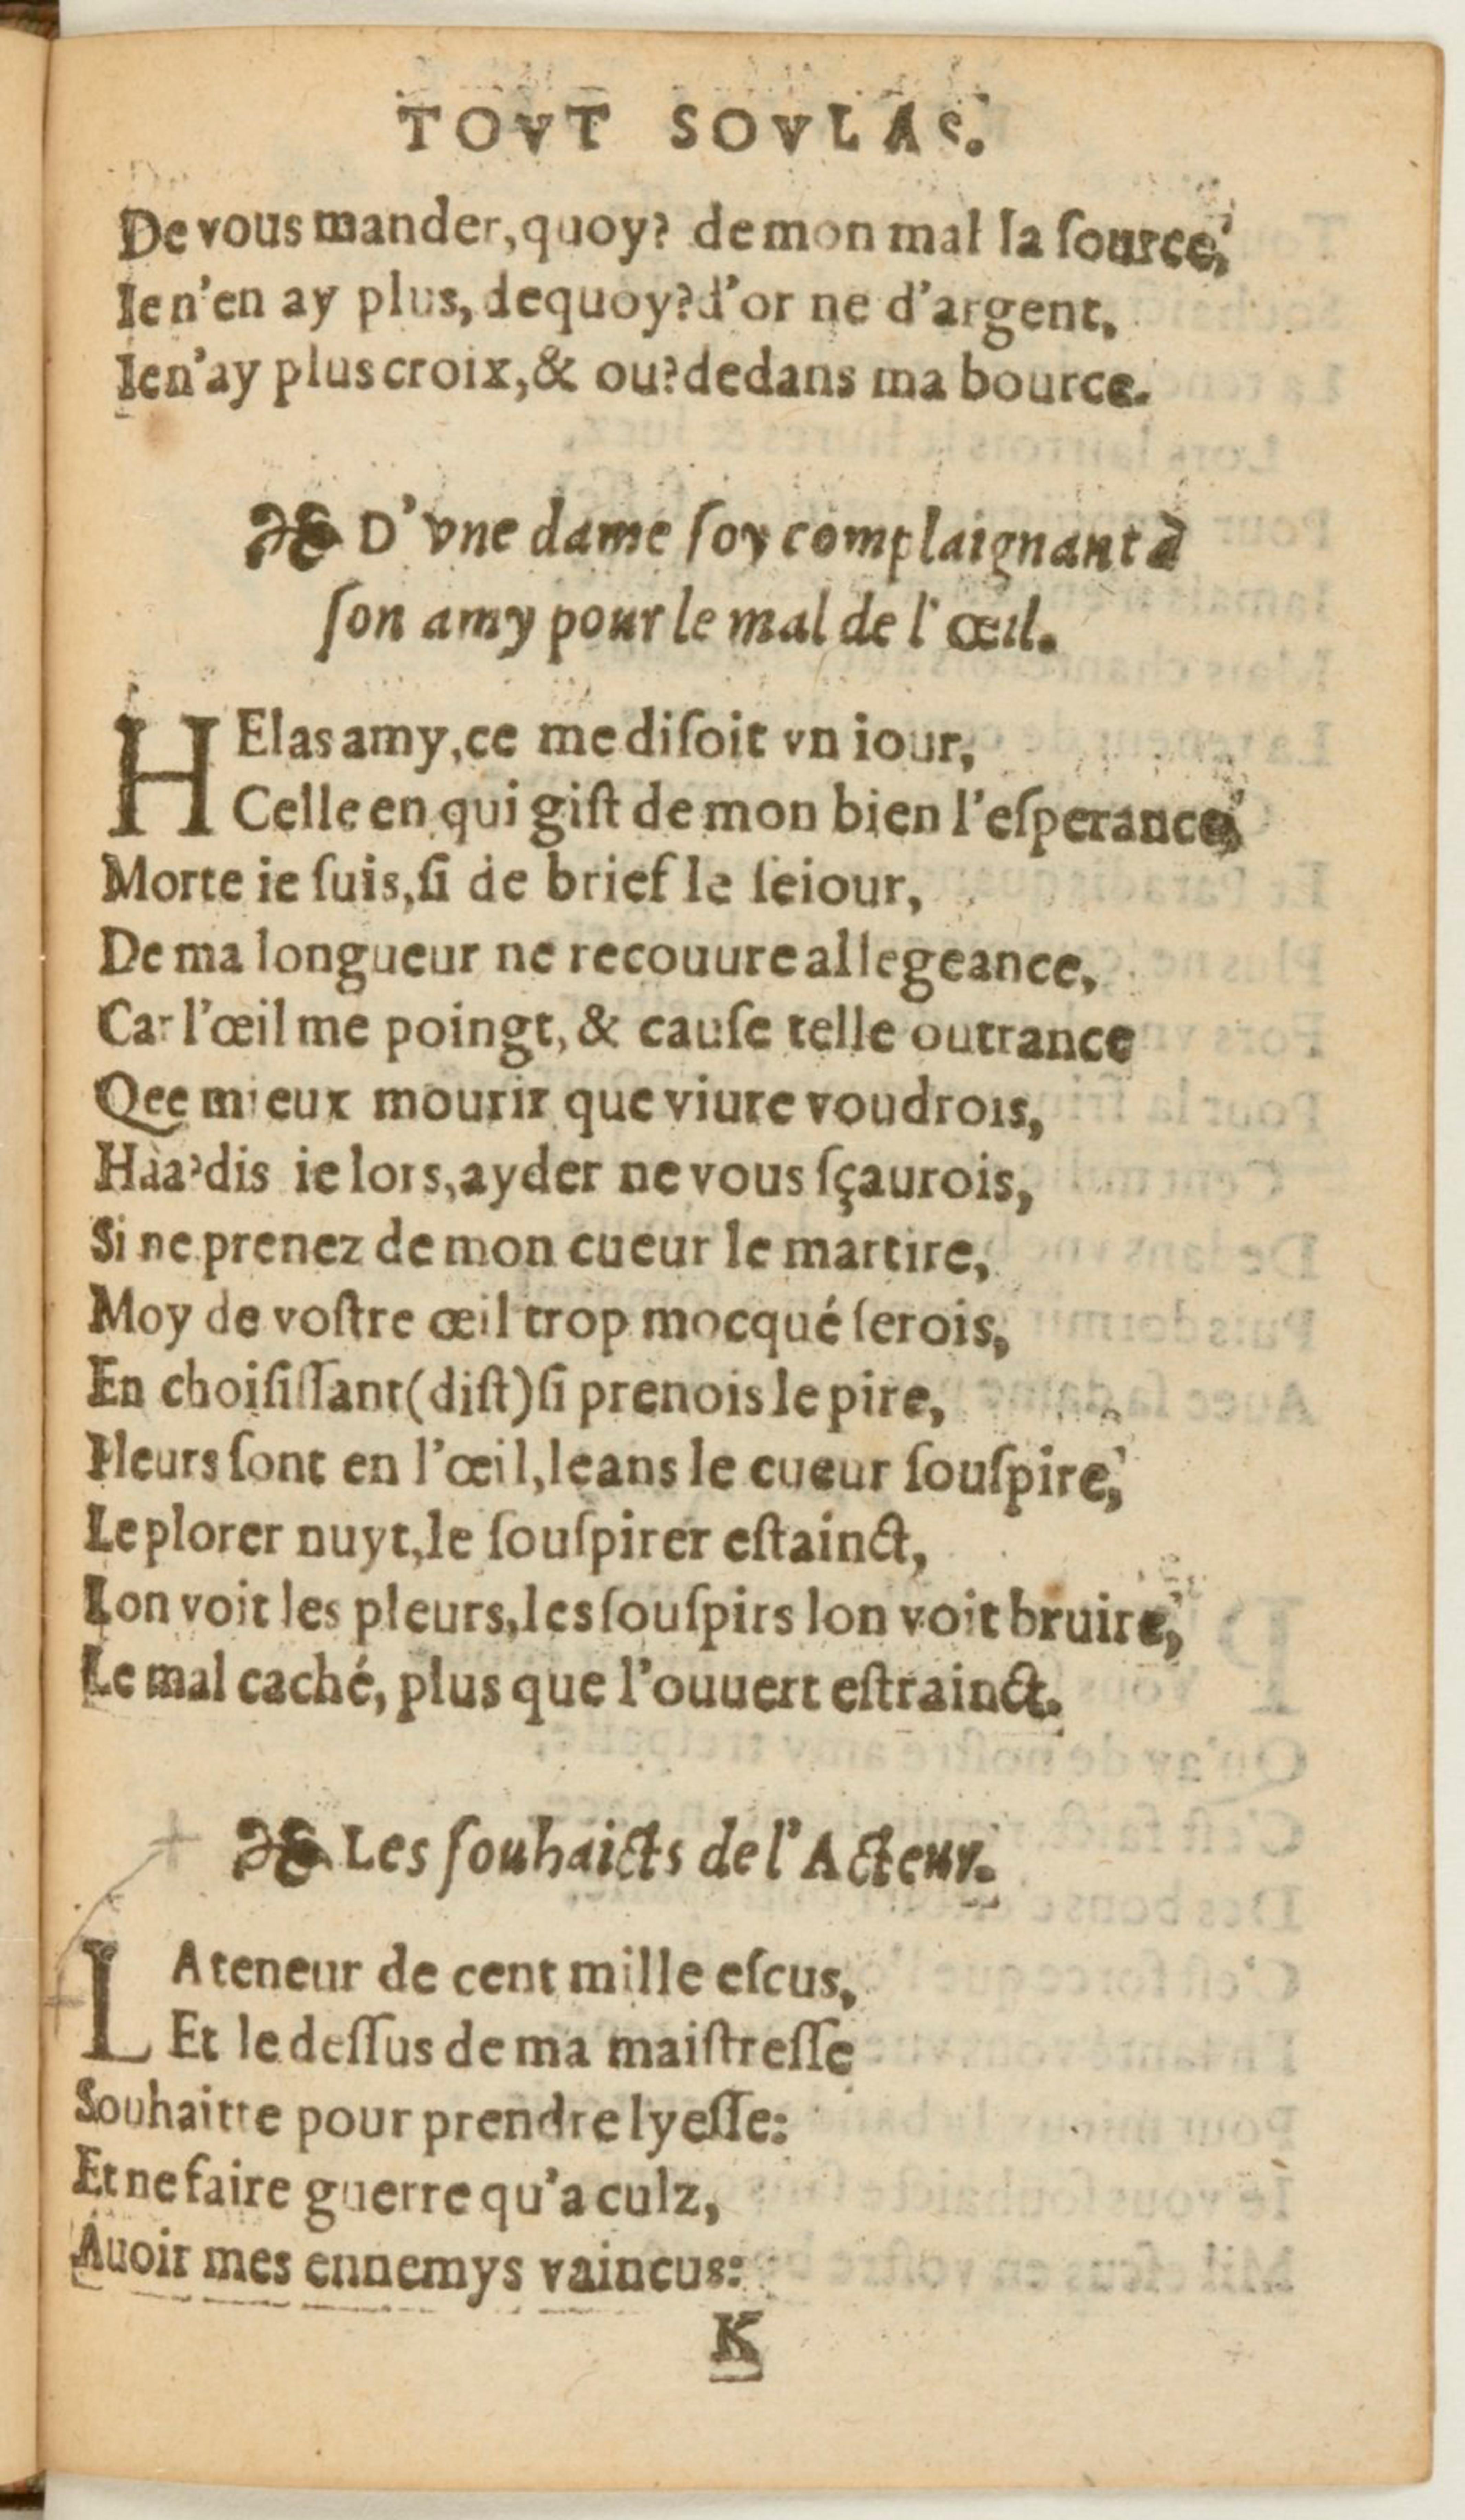 TOVT SOVLAS.
De vous mander, quoy? de mon mal la ſource,
Ie n'en ay plus, dequoy? d'or ne d'argent,
Ie n'ay plus croix, & ou? dedans ma bource.
D'vne dame ſoy complaignant à
ſon amy pour le mal de l'œil.
HElas amy, ce me diſoit vn iour,
Celle en qui giſt de mon bien l'eſperance,
Morte ie ſuis, ſi de brief le ſeiour,
De ma longueur ne recouure allegeance,
Car l'œil me poingt, & cauſe telle outrance
Qee mieux mourir que viure voudrois,
Hàa? dis ie lors, ayder ne vous ſçaurois,
Si ne prenez de mon cueur le martire,
Moy de voſtre œil trop mocqué ſerois,
En choiſiſſant (diſt) ſi prenois le pire,
Pleurs ſont en l'œil, leans le cueur ſouſpire,
Le plorer nuyt, le ſouſpirer eſtainct,
Lon voit les pleurs, les ſouſpirs lon voit bruire,
Le mal caché, plus que l'ouuert eſtrainct.
Les ſouhaicts de l'Acteur.
LA teneur de cent mille eſcus,
Et le deſſus de ma maiſtreſſe
Souhaitte pour prendre lyeſſe:
Et ne faire guerre qu'a culz,
Auoir mes ennemys vaincus:
K